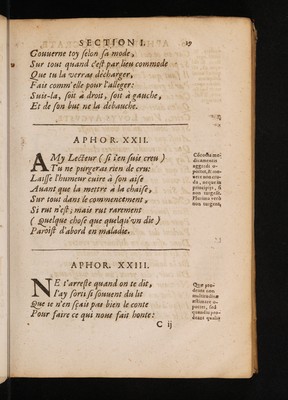 SECTION I. 19
Gouuerne toy selon sa mode,
Sur tout quand c'est par lieu commode
Que tu la verras decharger,
Fait comm'elle pour l'alleger:
Suis-la, soit à droit, soit à gauche,
Et de son but ne la debauche.
APHOR. XXII.
AMy Lecteur (si i'en suis creu)
Tu ne purgeras rien de cru:
Laisse l'humeur cuire à son aise
Auant que la mettre à la chaise,
Sur tout dans le commencement,
Si rut n'est; mais rut rarement
(Quelque chose que quelqu'vn die)
Paroist d'abord en maladie.
Cōcocta medicamentis
aggredi oportet,
& mouere non cruda,
neque in principiis, si
non turgeāt.
Plurima verò
non turgent.
APHOR. XXIII.
NE t'arreste quand on te dit,
I'ay sorti si souuent du lit
Que ie n'en sçais pas bien le conte
Pour faire ce qui nous fait honte:
Quæ prodeunt non
multitudine
æstimare oportet, sed
quandiu prodeunt qualia
C ij